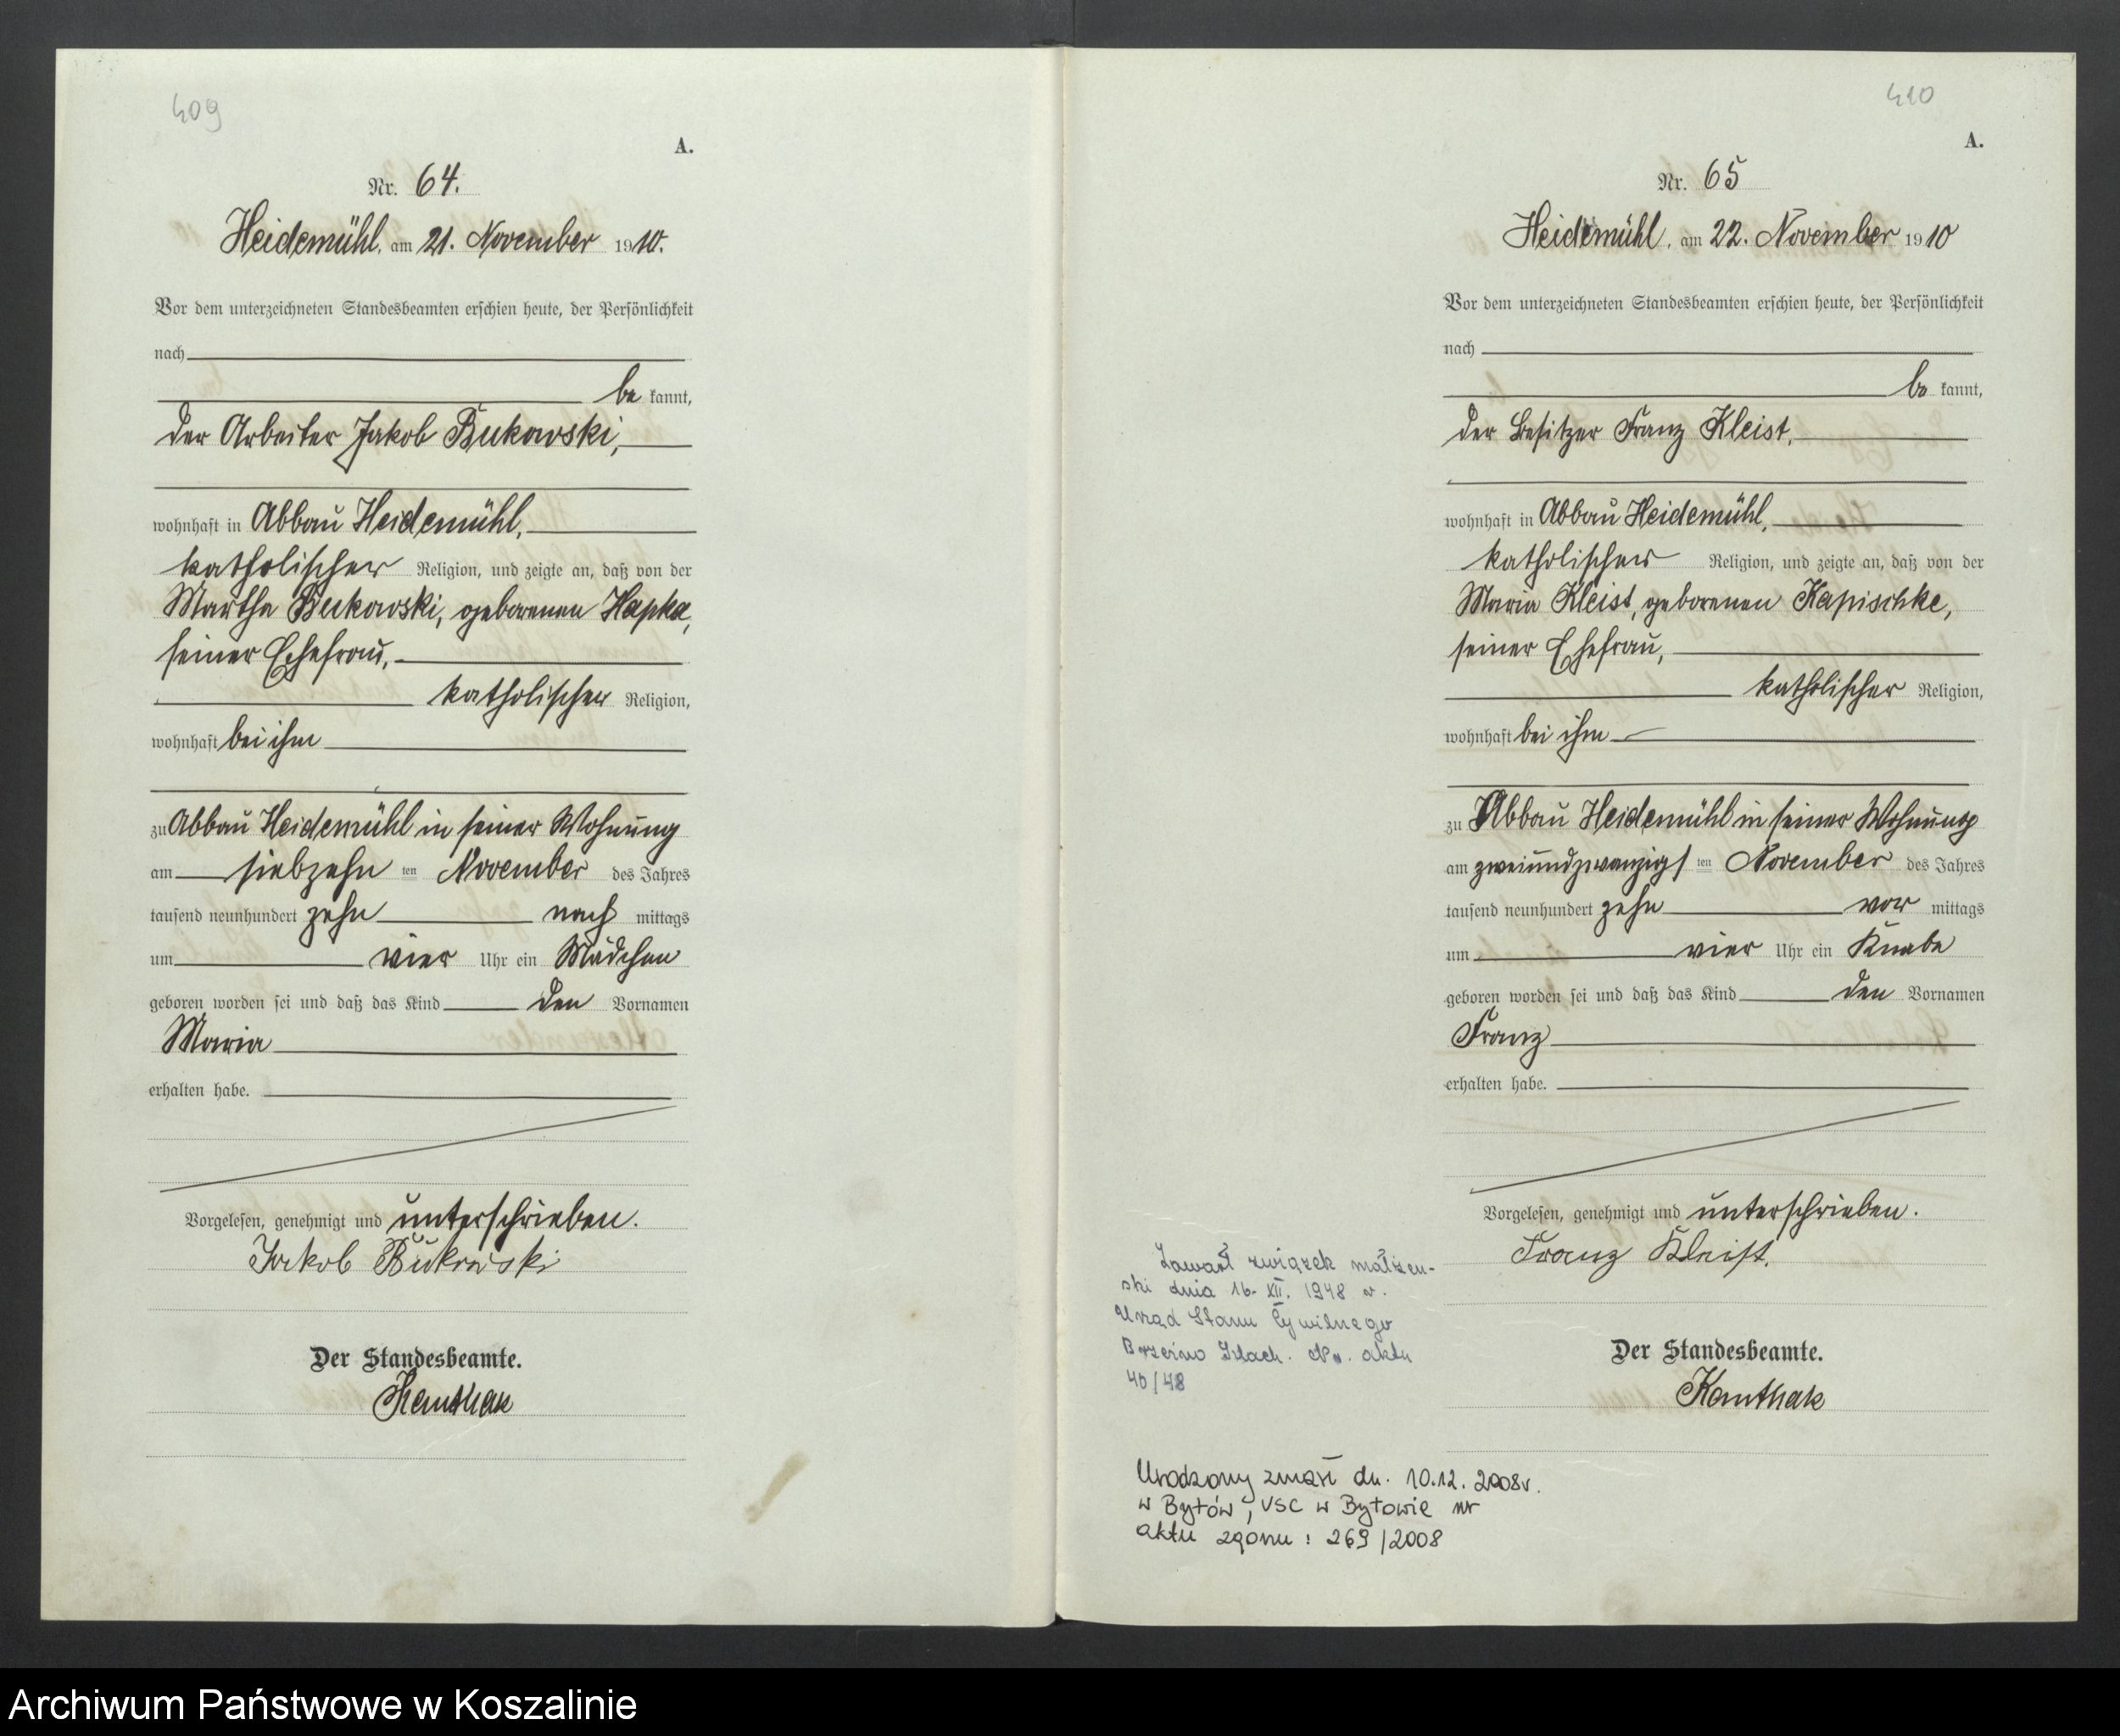 409
A.
Nr. 64.
Heidemühl, am 21. November 1910.
Vor dem unterzeichneten Standesbeamten erschien heute, der Persönlichkeit
nach
be kannt,
der Arbeiter Jakob Bukowski,
wohnhaft in Abbau Heidemühl,
katholischer Religion, und zeigte an, daß von der
Martha Bukowski, geborenen Hapka,
seiner Ehefrau,
katholischer Religion,
wohnhaft bei ihm
zu Abbau Heidemühl in seiner Wohnung
am siebzehn ten November des Jahres
tausend neunhundert zehn nach mittags
um vier Uhr ein Mädchen
geboren worden sei und daß das Kind den Vornamen
Maria
erhalten habe.
Vorgelesen, genehmigt und unterschrieben.
Jakob Bukowski
Der Standesbeamte.
Kamthak
410
A.
Nr. 65
Heidemühl, am 22. November 1910
Vor dem unterzeichneten Standesbeamten erschien heute, der Persönlichkeit
nach
be kannt,
der Besitzer Franz Kleist,
wohnhaft in Abbau Heidemühl,
katholischer Religion, und zeigte an, daß von der
Maria Kleist, geborenen Kapischke,
seiner Ehefrau,
katholischer Religion,
wohnhaft bei ihm
zu Abbau Heidemühl in seiner Wohnung
am zweiundzwanzigs ten November des Jahres
tausend neunhundert zehn vor mittags
um vier Uhr ein Knabe
geboren worden sei und daß das Kind den Vornamen
Franz
erhalten habe.
Vorgelesen, genehmigt und unterschrieben.
Franz Kleist.
Der Standesbeamte.
Kamthak
Zawarł związek małżeń-
ski dnia 16. XII. 1948 r.
Urząd Stanu Cywilnego
Brzeźno Szlach. Nr. aktu
40/48
Urodzony zmarł dn. 10.12.2008r.
w Bytów, USC w Bytowie nr
aktu zgonu: 269/2008
Archiwum Państwowe w Koszalinie